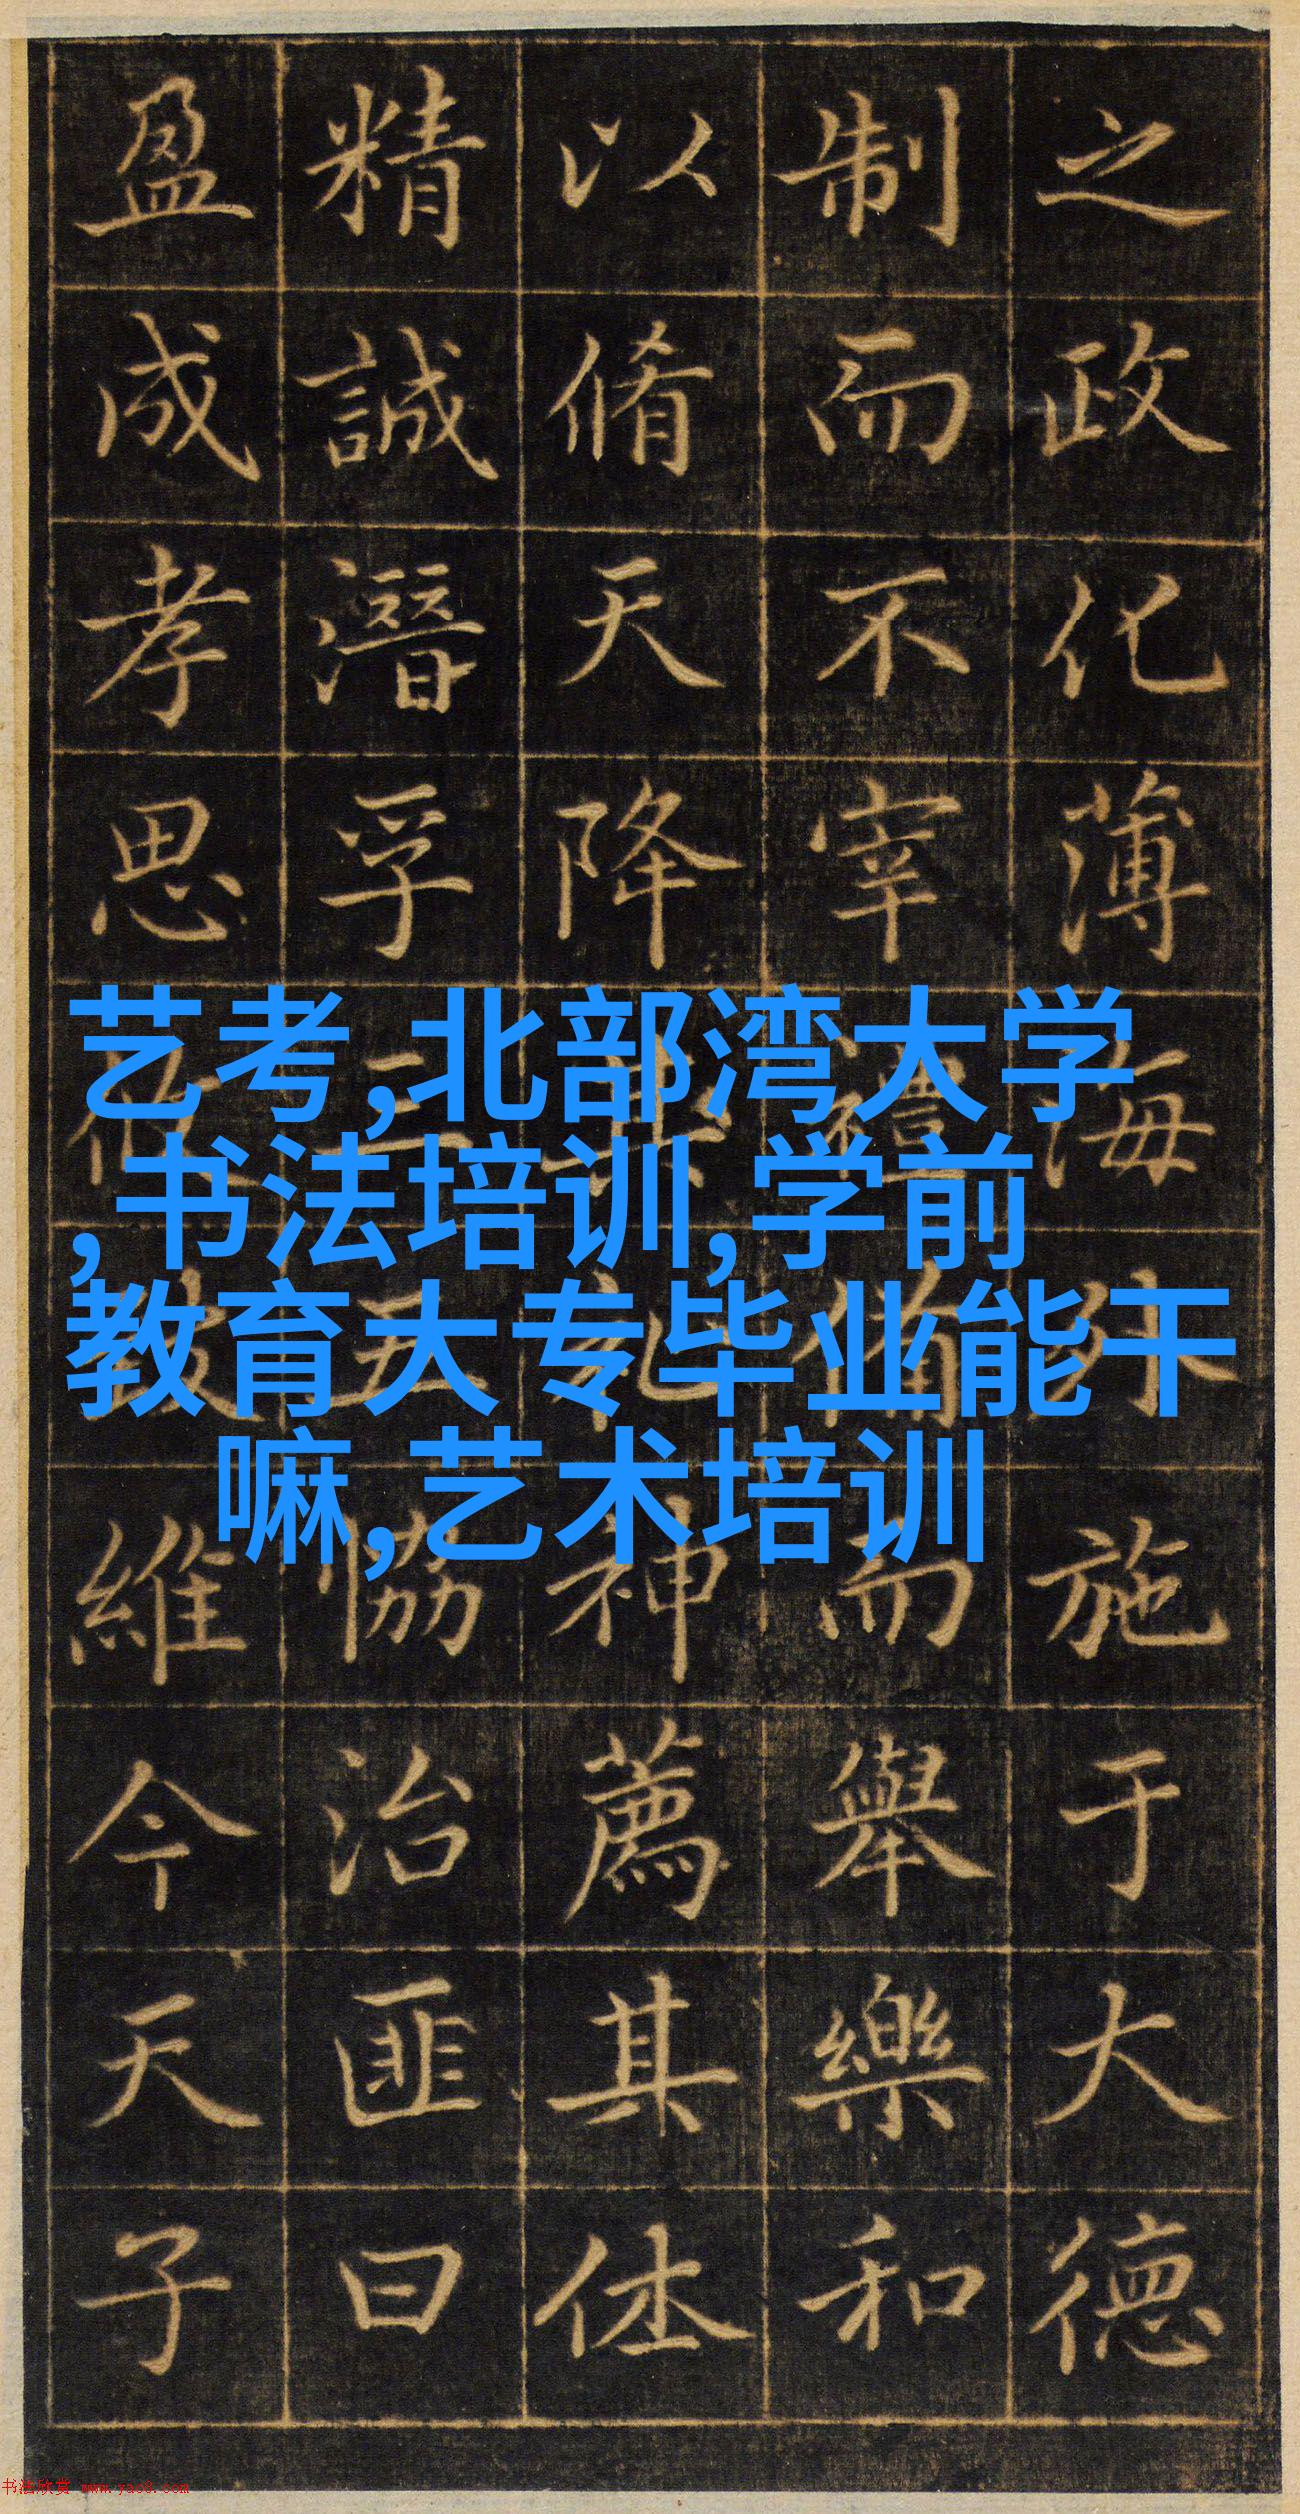 之政化薄海外施于大德
制而不宰禮備而舉樂和
以脩天降其神薦其体
精誠潛孚三五協治匪曰
盈成孝思維今天子
艺考,北部湾大学
,书法培训,学前
教育大专毕业能干
嘛,艺术培训
书法欣赏 www.yac8.com